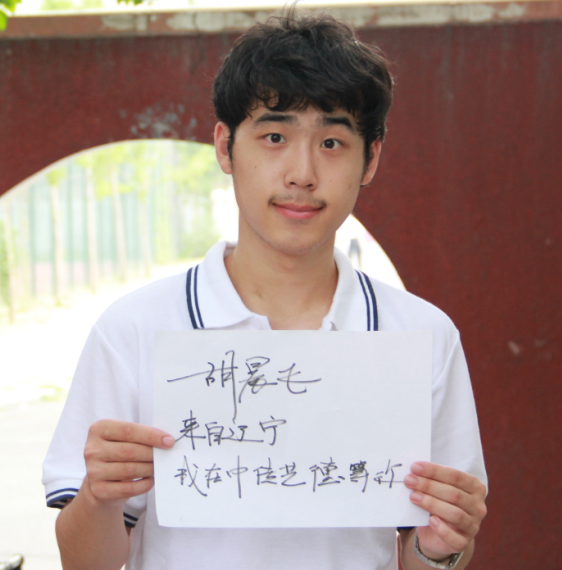 胡晨
来自辽宁
我在中传艺德等你